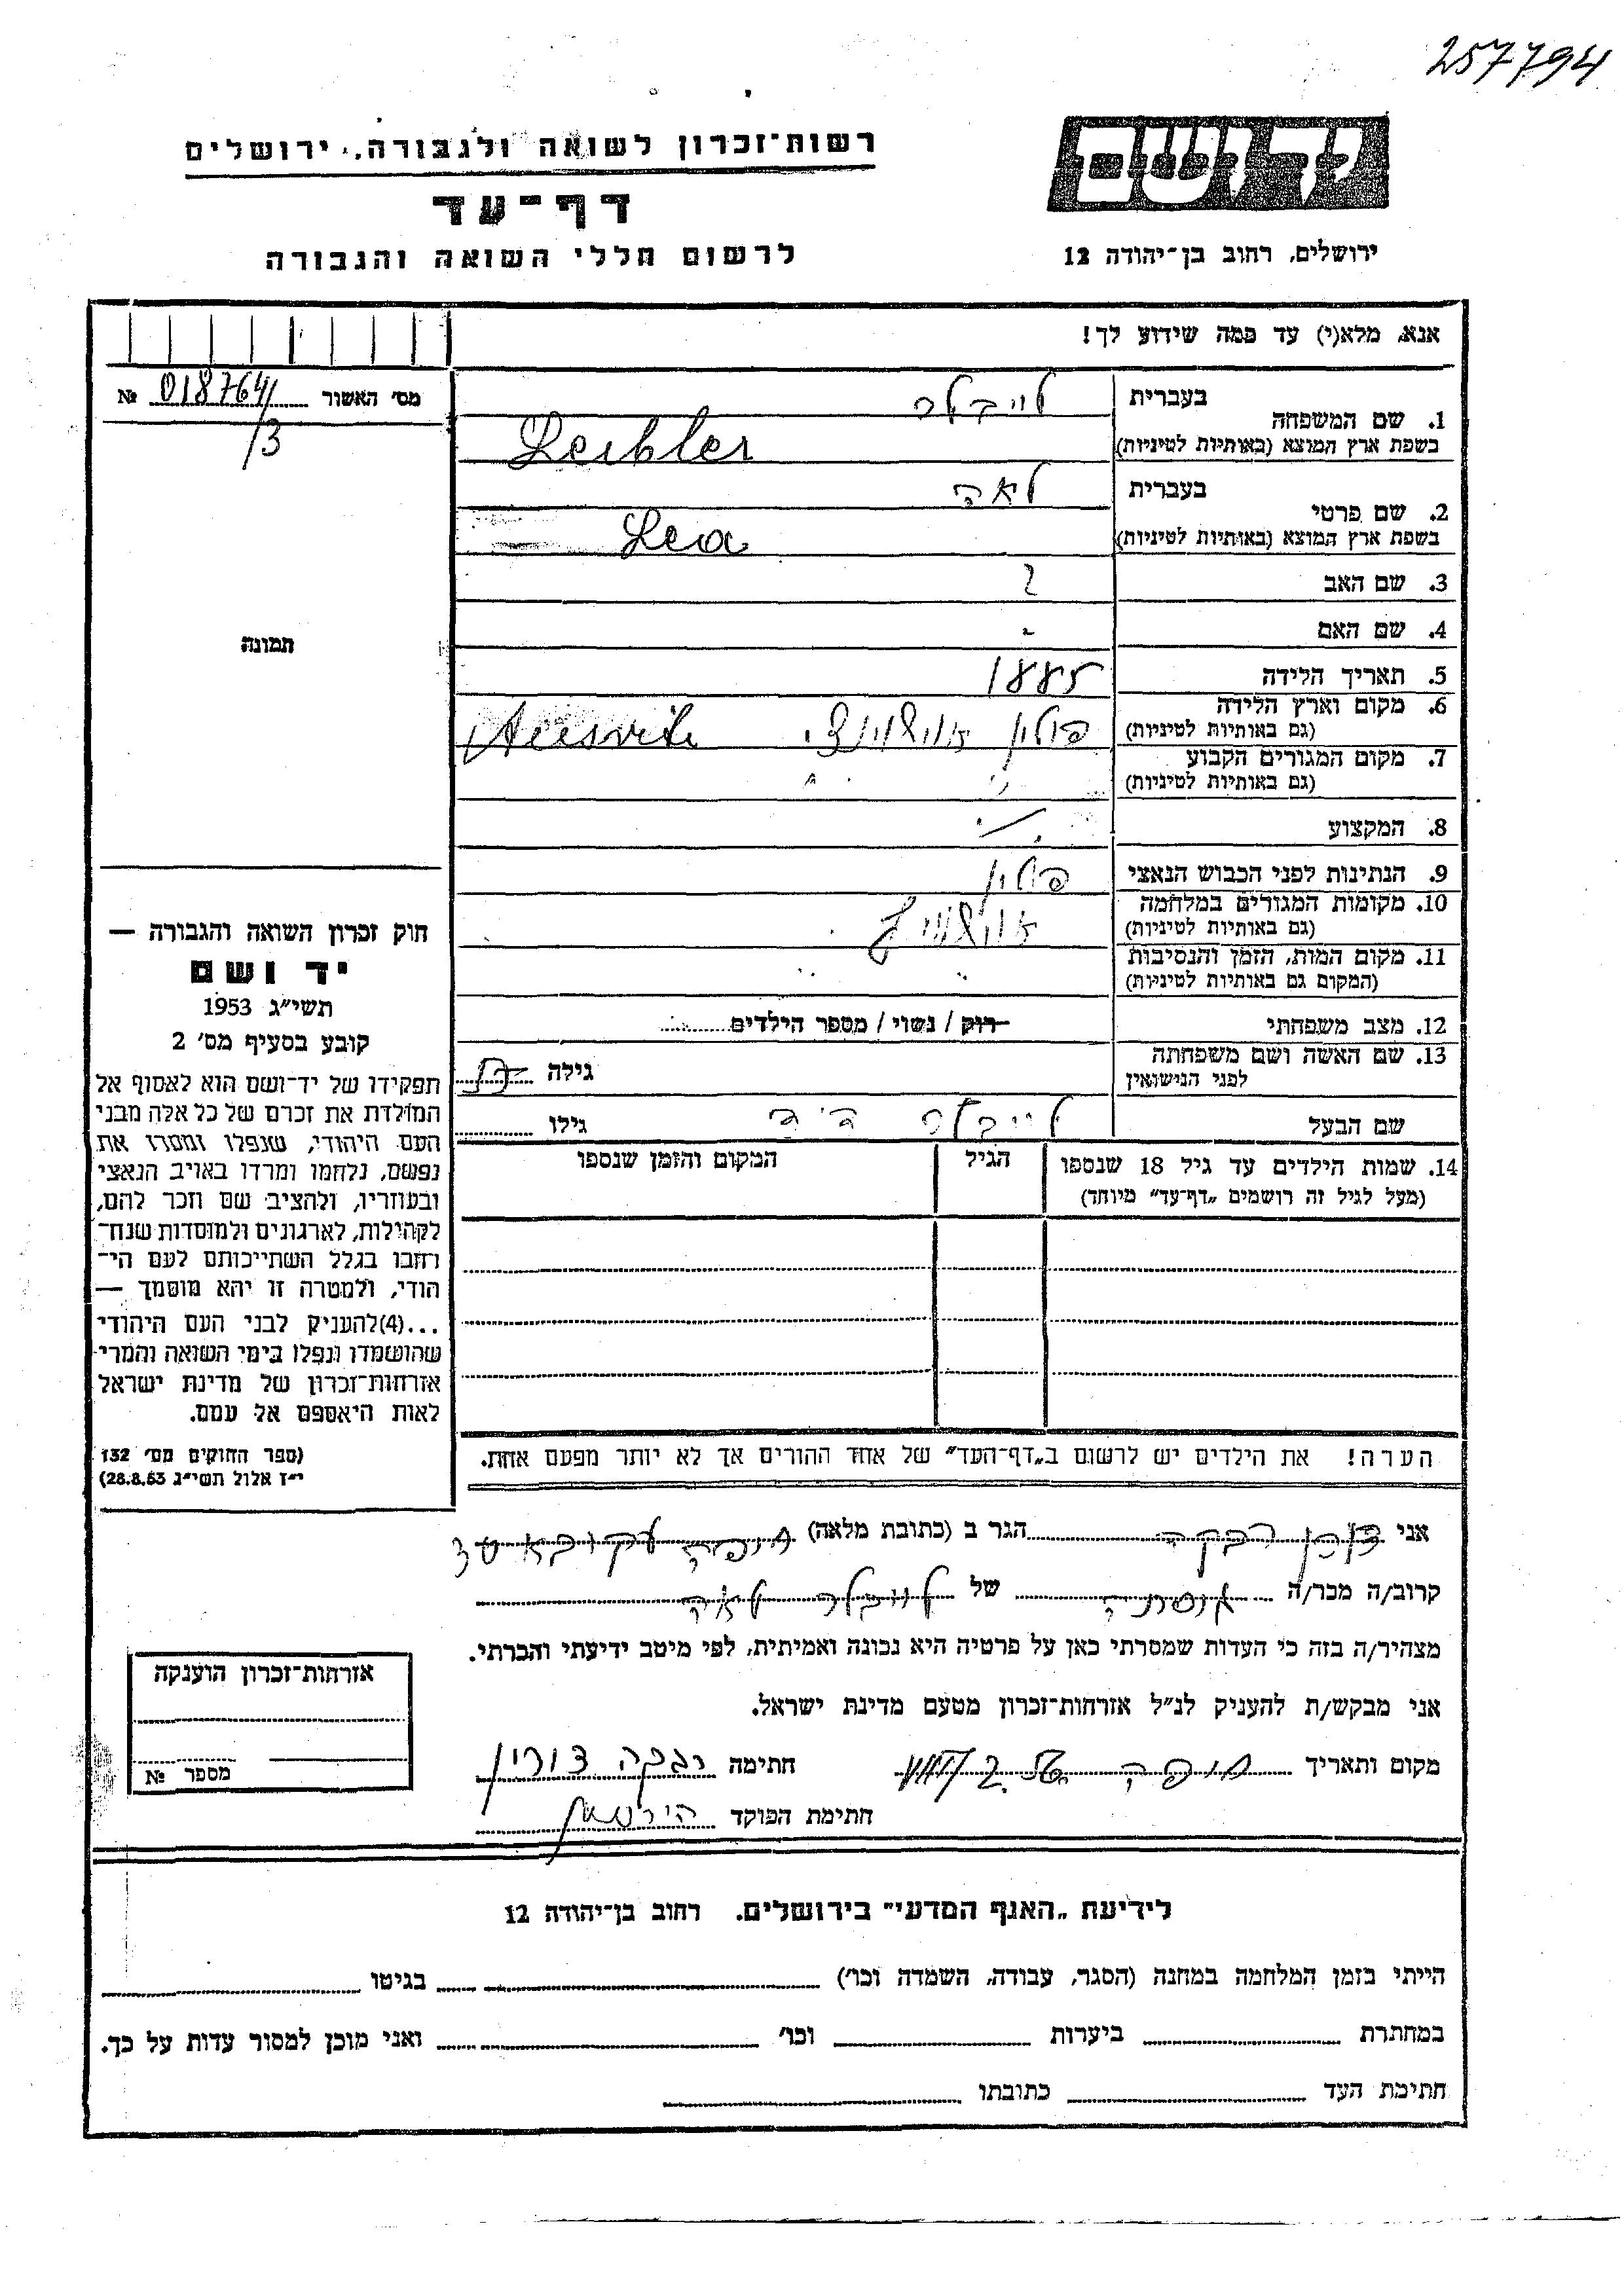 257794
יד ושם
רשות־זכרון לשואה ולגבורה, ירושלים
דף־עד
לרשום חללי השואה והגבורה
ירושלים, רחוב בן־יהודה 12
אנא, מלא(י) עד כמה שידוע לך!
מס׳ האשור № 018764/
/3
תמונה
1. שם המשפחה
בעברית לייבלר
בשפת ארץ המוצא (באותיות לטיניות) Leibler
2. שם פרטי
בעברית לאה
בשפת ארץ המוצא (באותיות לטיניות) Lea
3. שם האב ?
4. שם האם -
5. תאריך הלידה 1885
6. מקום וארץ הלידה
(גם באותיות לטיניות) פולין
7. מקום המגורים הקבוע
(גם באותיות לטיניות) " "
8. המקצוע
9. הנתינות לפני הכבוש הנאצי פולין
10. מקומות המגורים במלחמה
(גם באותיות לטיניות)
11. מקום המות, הזמן והנסיבות
(המקום גם באותיות לטיניות) "
12. מצב משפחתי רווק / נשוי / מספר הילדים
13. שם האשה ושם משפחתה
לפני הנישואין
גילה
שם הבעל לייבלר דוד גילו
14. שמות הילדים עד גיל 18 שנספו
(מעל לגיל זה רושמים „דף־עד” מיוחד)
הגיל
המקום והזמן שנספו
הערה! את הילדים יש לרשום ב„דף־העד” של אחד ההורים אך לא יותר מפעם אחת.
חוק זכרון השואה והגבורה —
יד ושם
תשי״ג 1953
קובע בסעיף מס׳ 2
תפקידו של יד־ושם הוא לאסוף אל
המולדת את זכרם של כל אלה מבני
העם היהודי, שנפלו ומסרו את
נפשם, נלחמו ומרדו באויב הנאצי
ובעוזריו, ולהציב שם וזכר להם,
לקהילות, לארגונים ולמוסדות שנח־
רבו בגלל השתייכותם לעם הי־
הודי, ולמטרה זו יהא מוסמך —
...(4)להעניק לבני העם היהודי
שהושמדו ונפלו בימי השואה והמרי
אזרחות־זכרון של מדינת ישראל
לאות היאספם אל עמם.
(ספר החוקים מס׳ 132
י״ז אלול תשי״ג 28.8.53)
אני צורן רבקה הגר ב (כתובת מלאה) חיפה
קרוב/ה מכר/ה של לייבלר לאה
מצהיר/ה בזה כי העדות שמסרתי כאן על פרטיה היא נכונה ואמיתית, לפי מיטב ידיעתי והכרתי.
אני מבקש/ת להעניק לנ״ל אזרחות־זכרון מטעם מדינת ישראל.
מקום ותאריך חיפה חתימה רבקה צורן
חתימת הפוקד
אזרחות־זכרון הוענקה
מספר №
לידיעת „האגף המדעי” בירושלים, רחוב בן־יהודה 12
הייתי בזמן המלחמה במחנה (הסגר, עבודה, השמדה וכו׳) בגיטו
במחתרת ביערות וכו׳ ואני מוכן למסור עדות על כך.
חתימת העד כתובתו